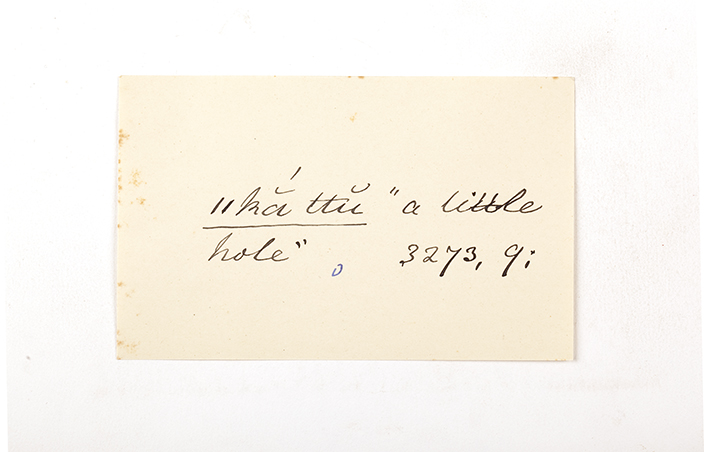 ‖kắ ttŭ "a little
hole" o 3273, 9;